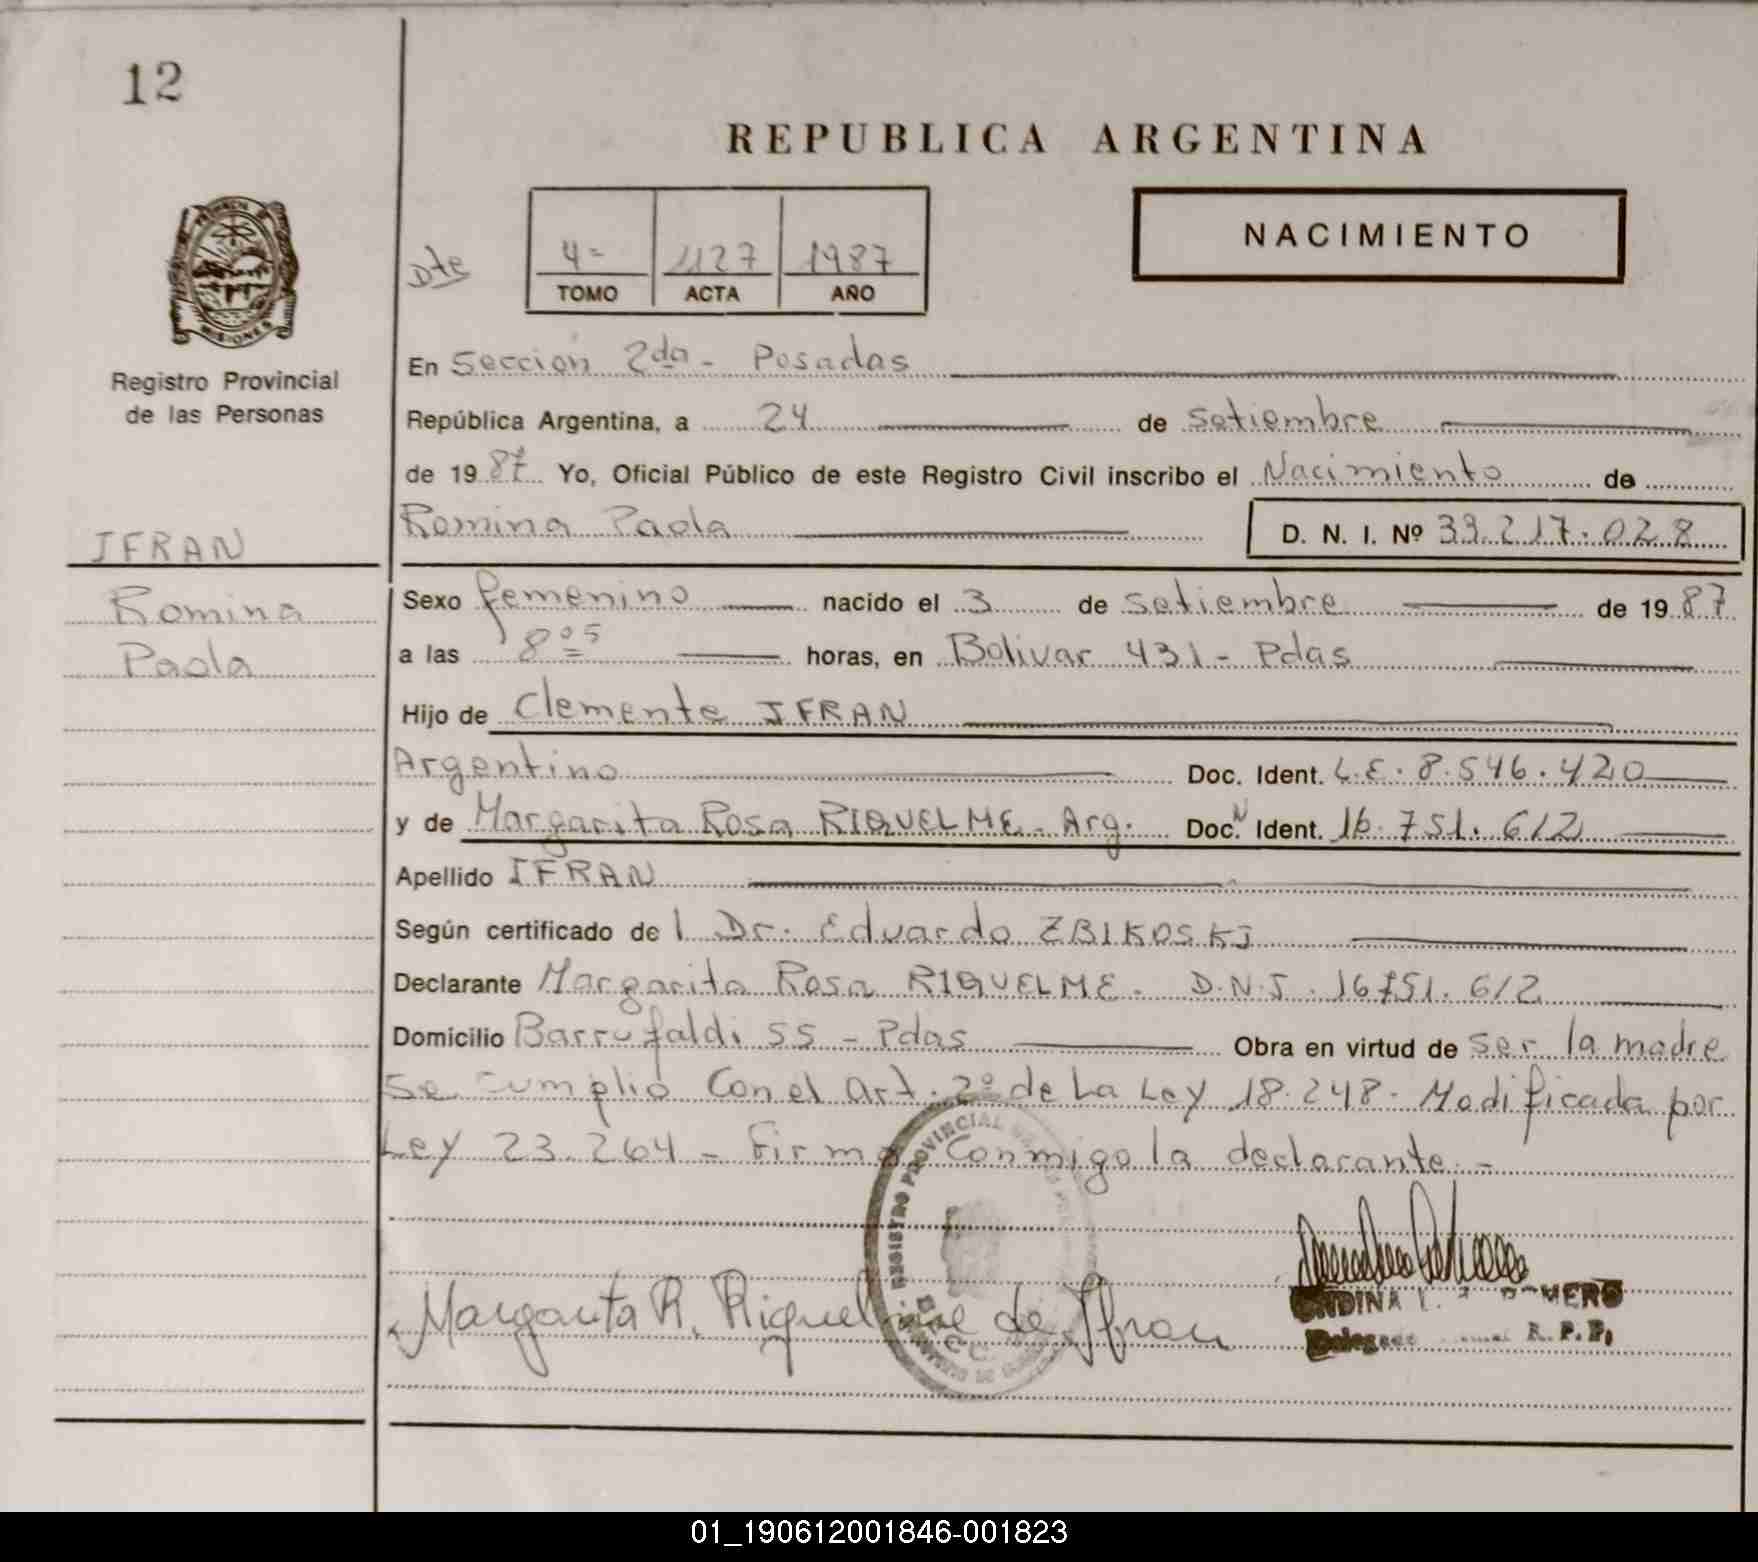 12
REPUBLICA ARGENTINA
NACIMIENTO
Dte
4= 1127 1987
TOMO ACTA AÑO
PROVINCIA DE
MISIONES
Registro Provincial
de las Personas
En Sección 2da - Posadas
República Argentina, a 24 de Setiembre
de 1987 Yo, Oficial Público de este Registro Civil inscribo el Nacimiento de
Romina Paola D. N. I. Nº 33.217.028
IFRAN
Romina
Paola
Sexo femenino nacido el 3 de Setiembre de 1987
a las 8 05 horas, en Bolivar 431 - Pdas
Hijo de Clemente IFRAN
Argentino Doc. Ident. L.E. 8.546.420
y de Margarita Rosa RIQUELME - Arg. Doc. N Ident. 16.751.612
Apellido IFRAN
Según certificado de l Dr. Eduardo ZBIKOSKI
Declarante Margarita Rosa RIQUELME - D.N.I. 16751.612
Domicilio Barrufaldi 55 - Pdas Obra en virtud de ser la madre
Se cumplio Con el art. 2º de La Ley 18.248 - Modificada por
Ley 23.264 - Firma Conmigo la declarante -
REGISTRO PROVINCIAL
Margarita R. Riquelme de Ifran
R. P. P.
01_190612001846-001823